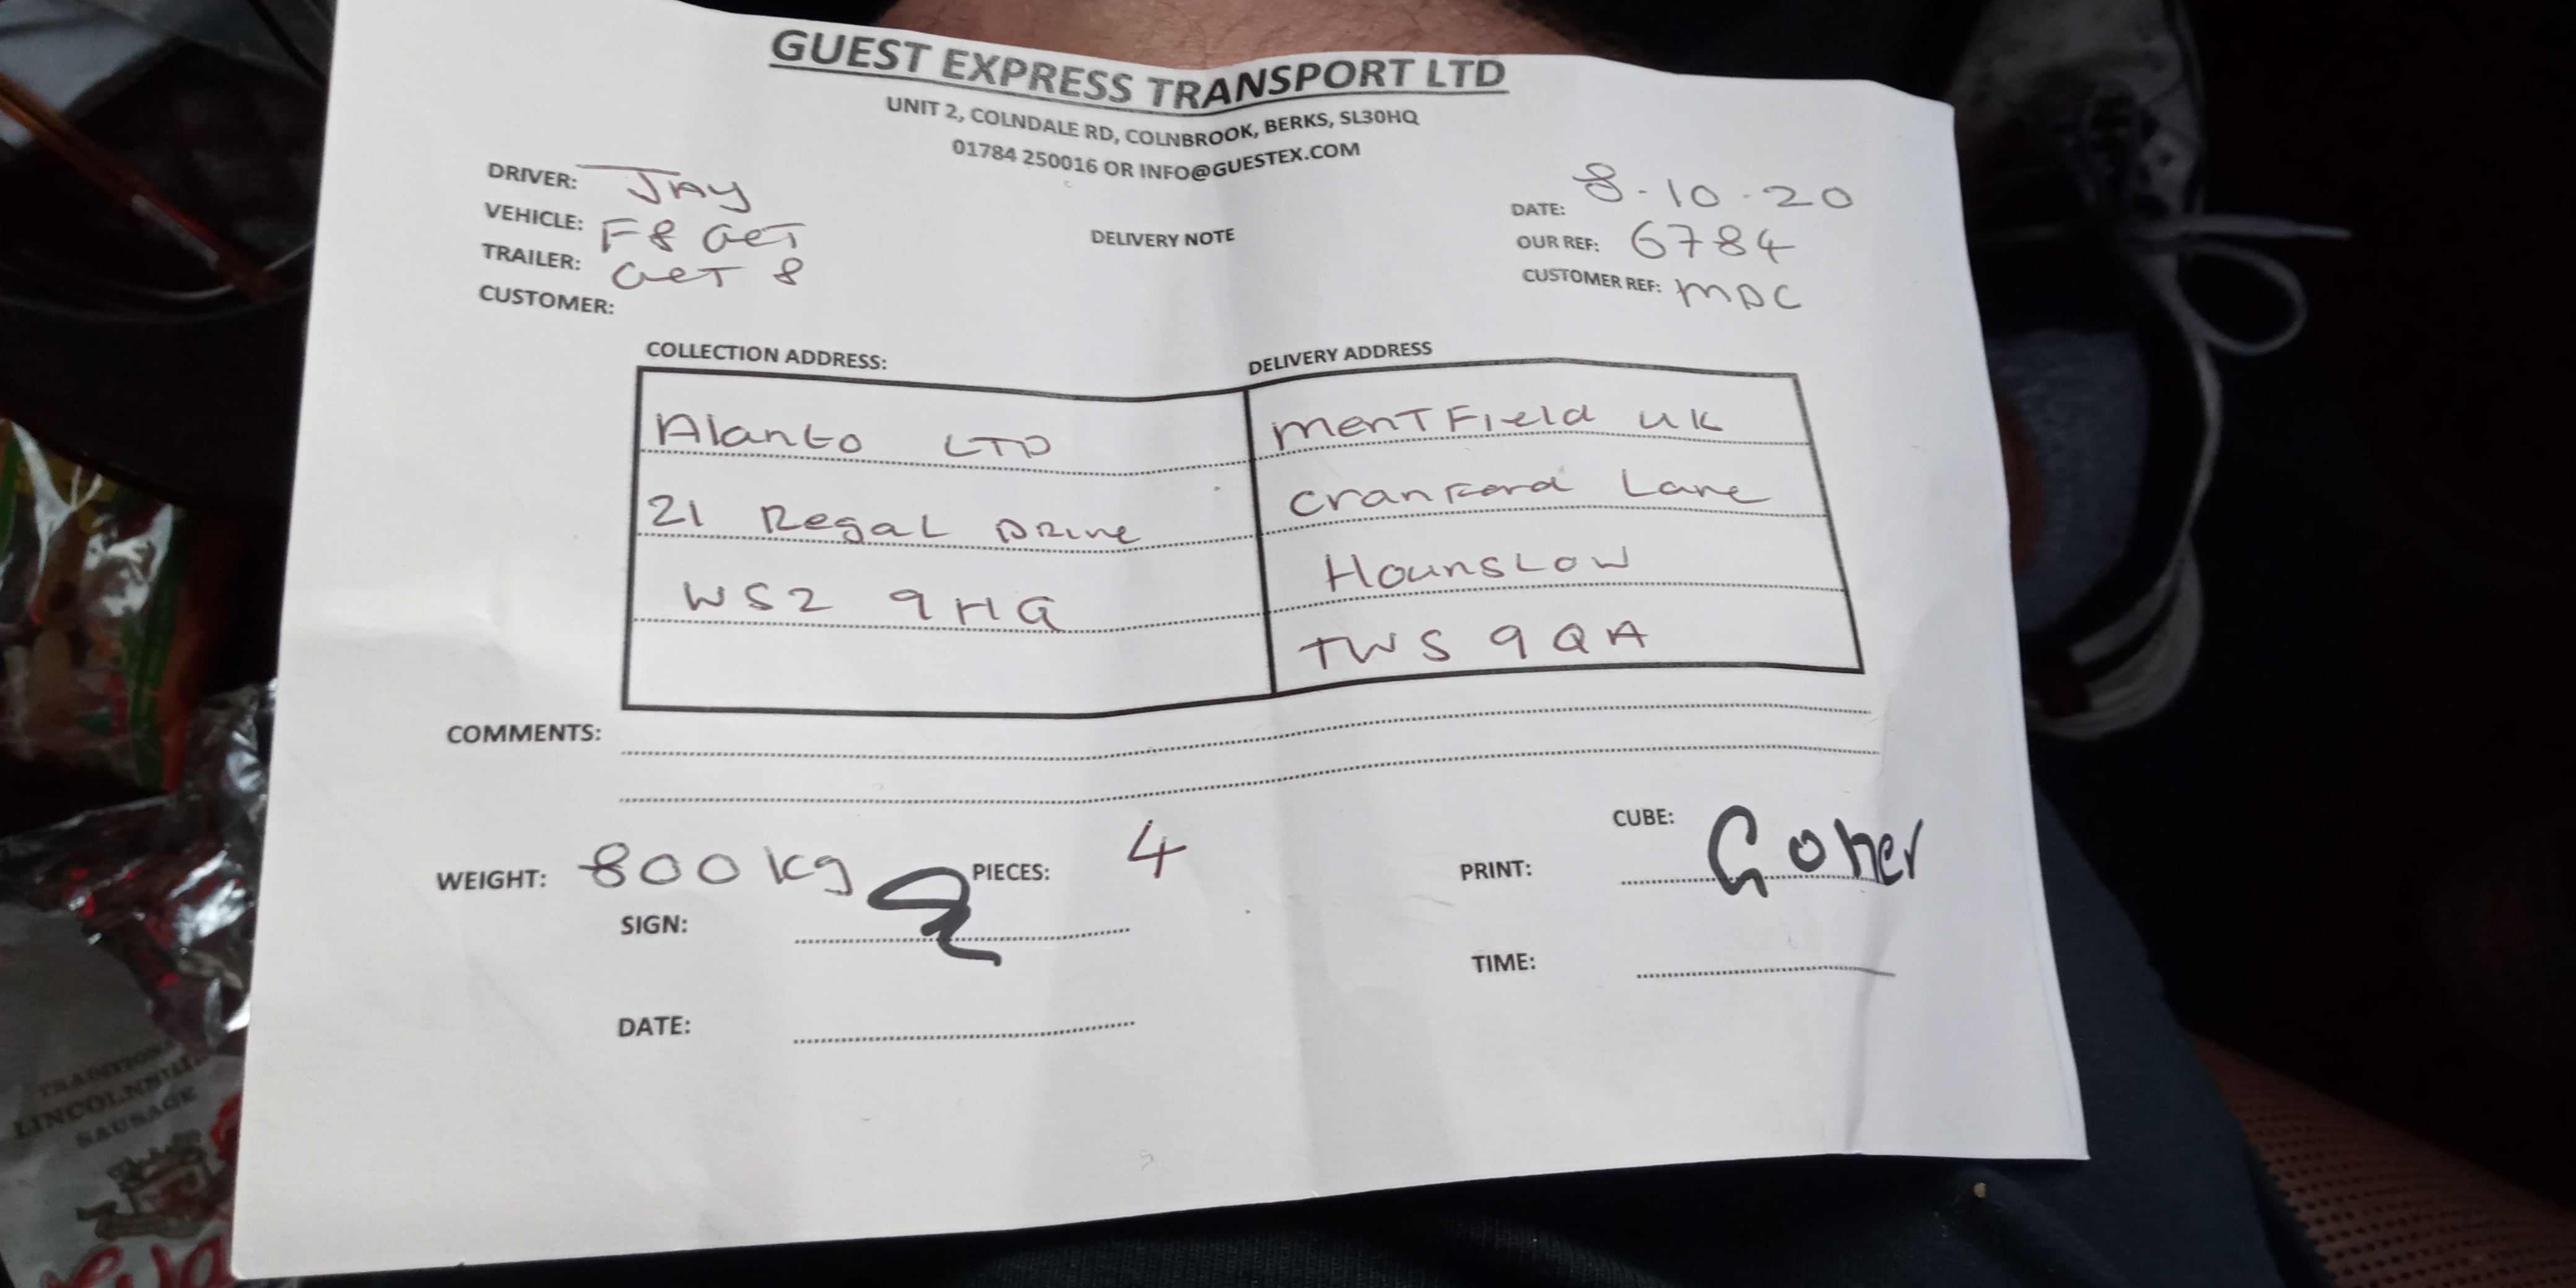 GUEST EXPRESS TRANSPORT LTD
UNIT 2, COLNDALE RD, COLNBROOK, BERKS, SL30HQ
01784 250016 OR INFO@GUESTEX.COM
DRIVER: JAY
VEHICLE: F8 GET
TRAILER: GET 8
CUSTOMER:
DELIVERY NOTE
DATE: 8-10-20
OUR REF: 6784
CUSTOMER REF: MDC
COLLECTION ADDRESS:
Alanto LTD
21 Regal Drive
WS2 9HG
DELIVERY ADDRESS
menTField UK
Cranford Lane
Hounslow
TW5 9QA
COMMENTS:
WEIGHT: 800kg
PIECES: 4
CUBE:
PRINT:
SIGN:
TIME:
DATE:
TRADITIONAL
LINCOLNSHIRE
SAUSAGE